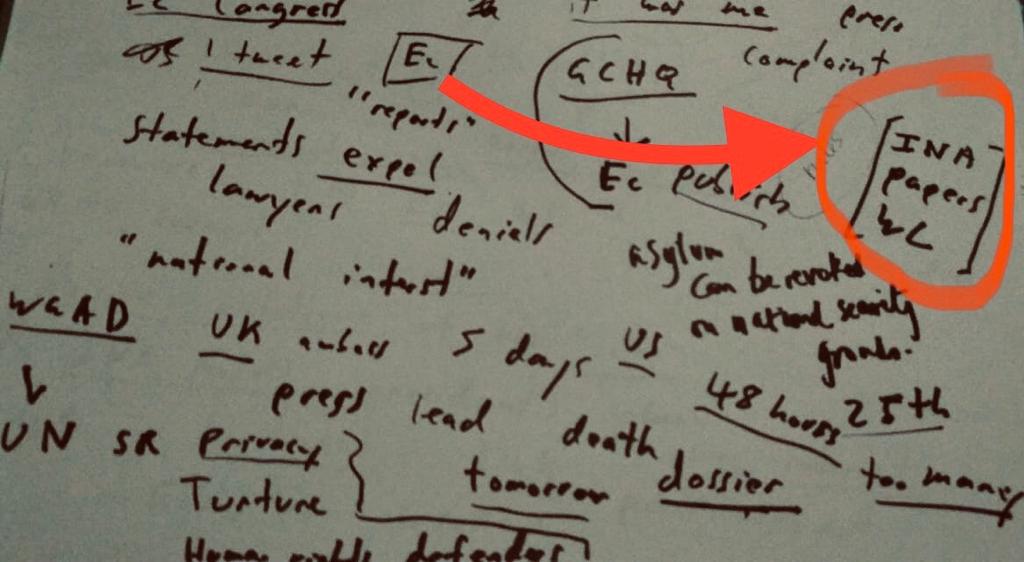 Ec Congress
it was me press
1 tweet Ec
complaint
"reports"
GCHQ
Statements expel
Ec publish
lawyers denials
INA
papers
WL
"national interest"
asylum
can be revoked
on national security
grounds.
WGAD UK ambass 5 days US
48 hours 25th
press lead death
UN SR Privacy
tomorrow dossier too many
Torture
Human rights defenders